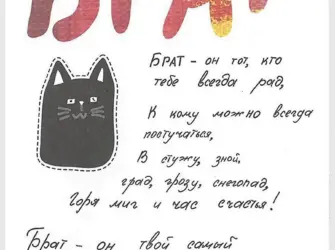 БРАТ
Брат – он тот, кто
тебе всегда рад,
К кому можно всегда
постучаться,
В стужу, зной,
град, грозу, снегопад,
Горя миг и час счастья!
Брат – он твой самый